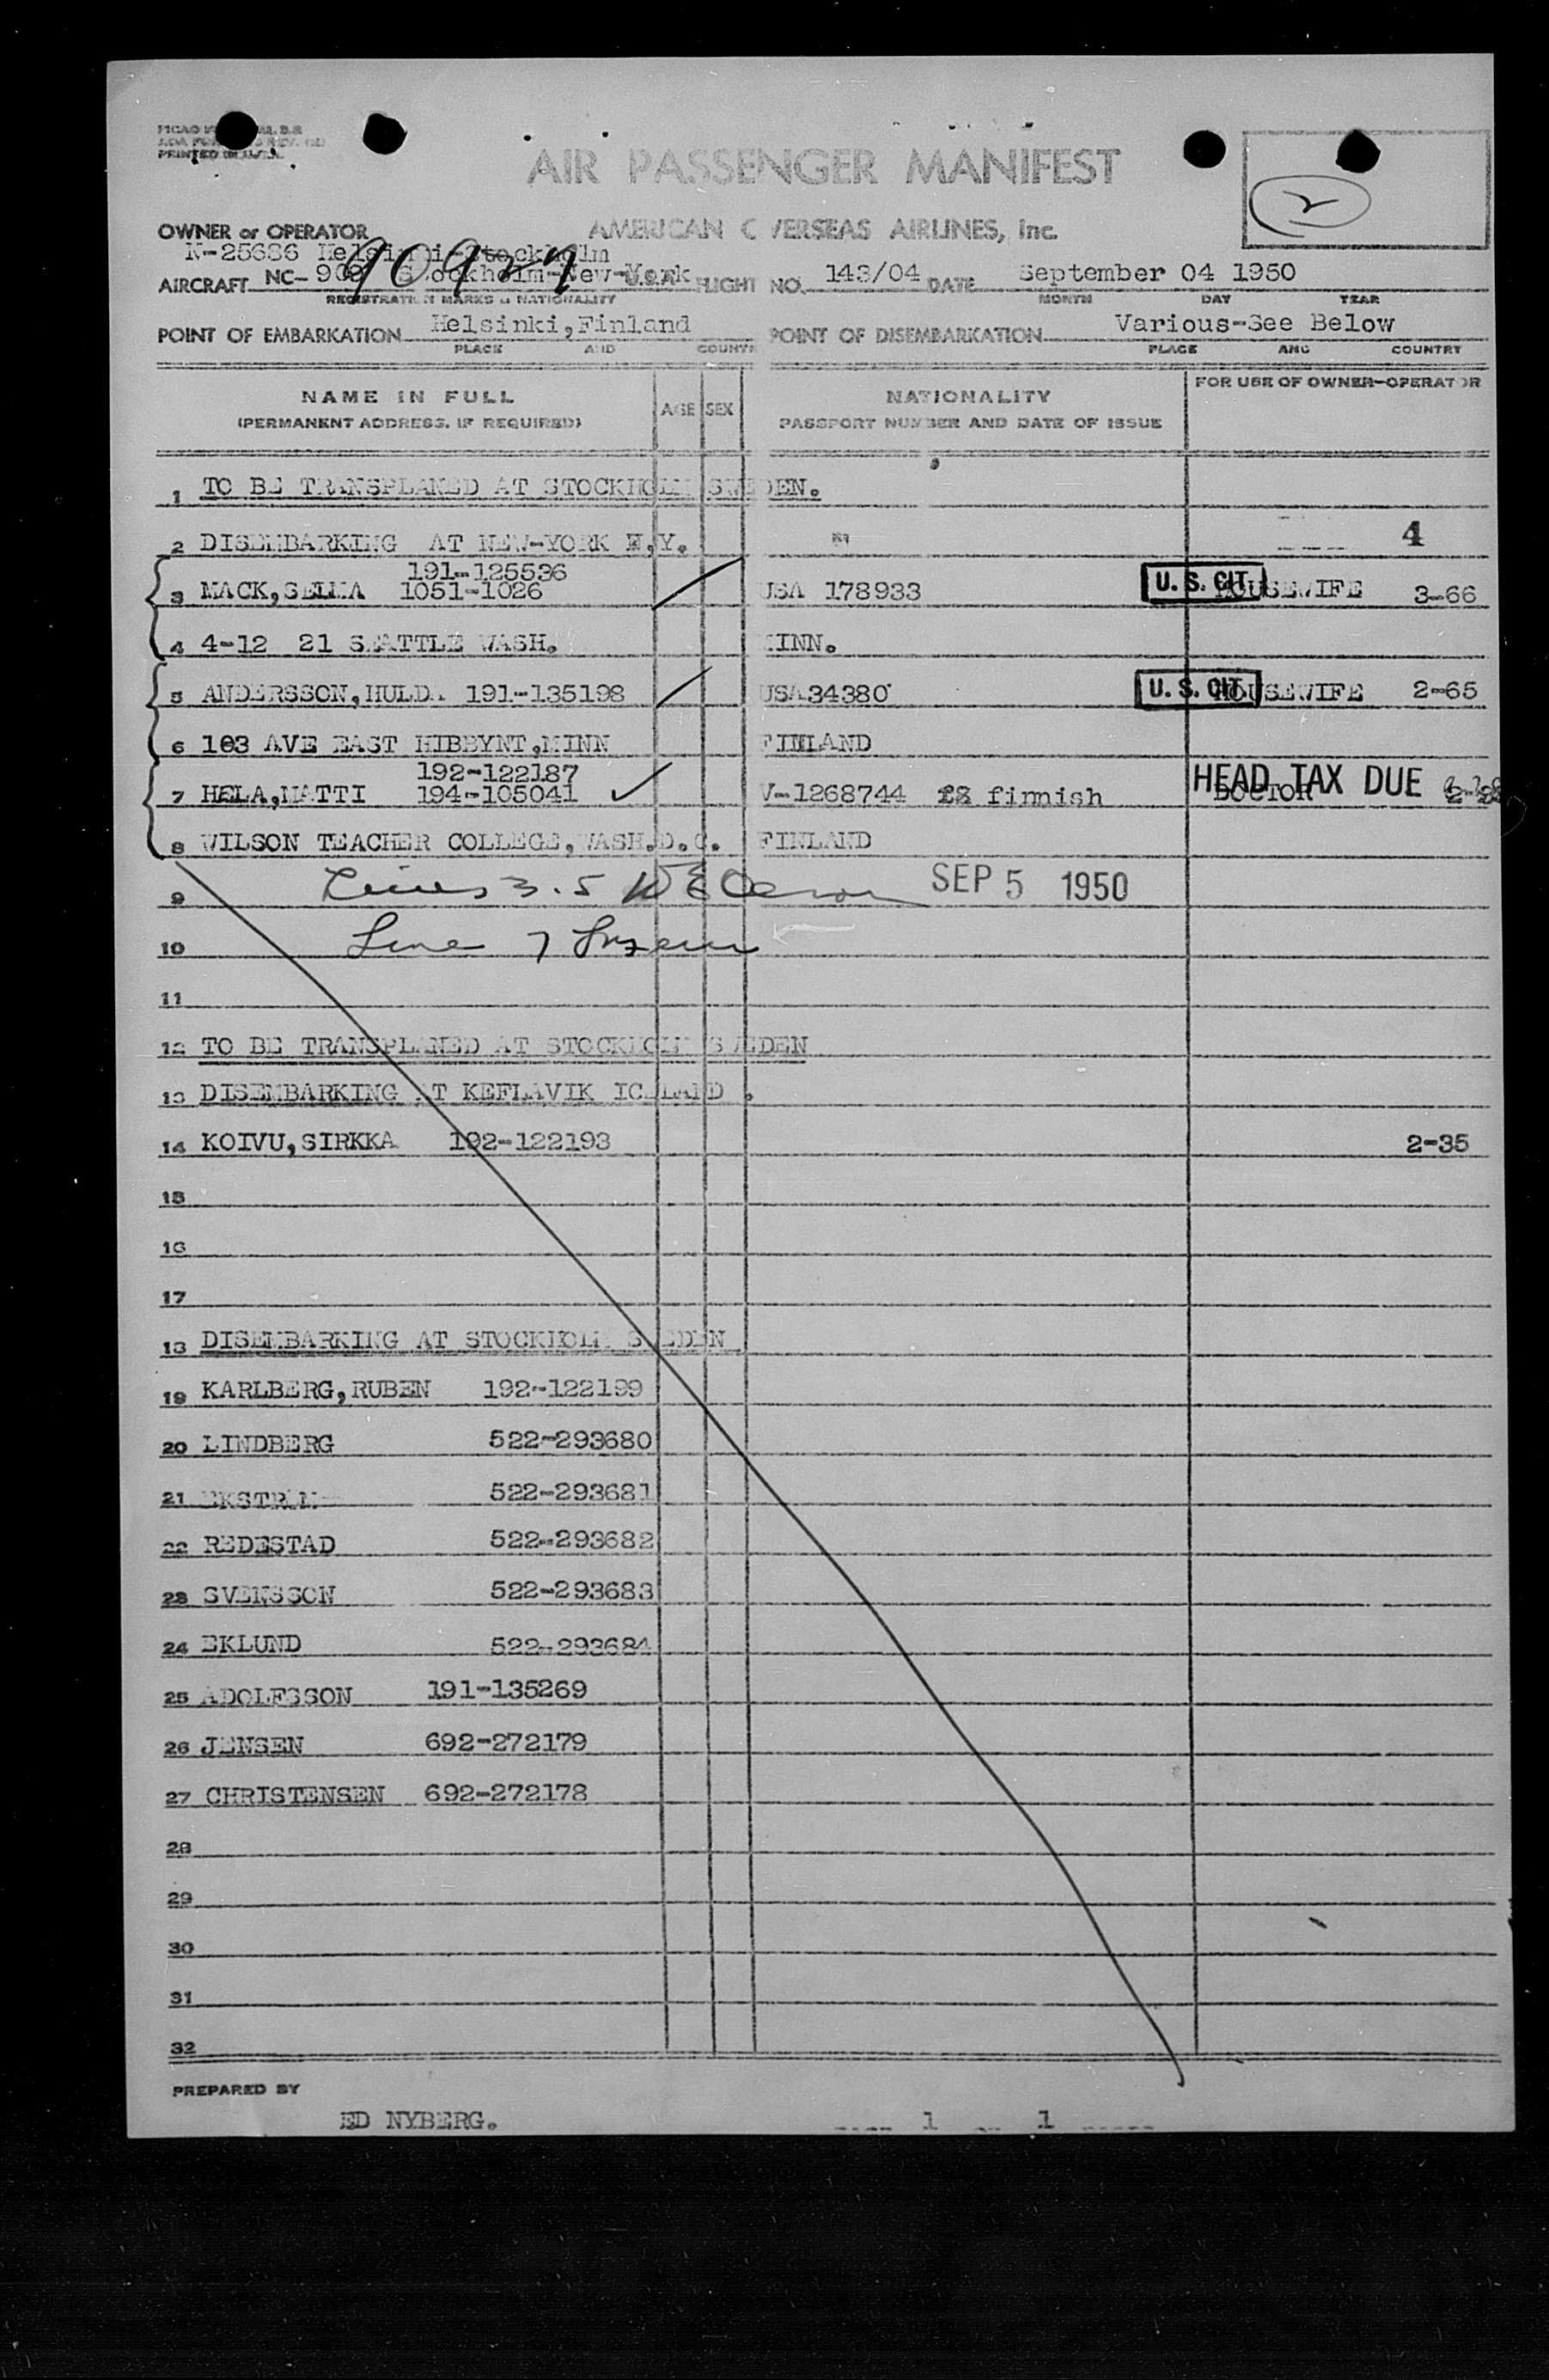 PRINTED IN U.S.A.
AIR PASSENGER MANIFEST
2
OWNER or OPERATOR AMERICAN OVERSEAS AIRLINES, Inc.
N-25686 Helsinki-Stockholm
AIRCRAFT NC- 90927 Stockholm-New-York U.S.A. FLIGHT NO. 143/04 DATE September 04 1950
REGISTRATION MARKS & NATIONALITY MONTH DAY YEAR
POINT OF EMBARKATION Helsinki,Finland POINT OF DISEMBARKATION Various-See Below
PLACE AND COUNTRY PLACE AND COUNTRY
NAME IN FULL AGE SEX NATIONALITY FOR USE OF OWNER-OPERATOR
(PERMANENT ADDRESS, IF REQUIRED) PASSPORT NUMBER AND DATE OF ISSUE
1 TO BE TRANSPLANED AT STOCKHOLM SWEDEN.
2 DISEMBARKING AT NEW-YORK N.Y. 4
191-125536
3 MACK,SELMA 1051-1026 USA 178933 U. S. CIT. HOUSEWIFE 3-66
4 4-12 21 SEATTLE WASH. MINN.
5 ANDERSSON,HULDA 191-135198 USA34380 U. S. CIT. HOUSEWIFE 2-65
6 103 AVE EAST HIBBYNT,MINN FINLAND
192-122187
7 HELA,MATTI 194-105041 V-1268744 finnish HEAD TAX DUE DOCTOR
8 WILSON TEACHER COLLEGE,WASH.D.C. FINLAND
9 Lines 3.5 SEP 5 1950
10 Line 7
11
12 TO BE TRANSPLANED AT STOCKHOLM SWEDEN
13 DISEMBARKING AT KEFLAVIK ICELAND .
14 KOIVU,SIRKKA 192-122193 2-35
15
16
17
18 DISEMBARKING AT STOCKHOLM SWEDEN
19 KARLBERG,RUBEN 192-122199
20 LINDBERG 522-293680
21 EKSTRÖM 522-293681
22 REDESTAD 522-293682
23 SVENSSON 522-293683
24 EKLUND 522-293684
25 ADOLFSSON 191-135269
26 JENSEN 692-272179
27 CHRISTENSEN 692-272178
28
29
30
31
32
PREPARED BY
ED NYBERG. 1 1